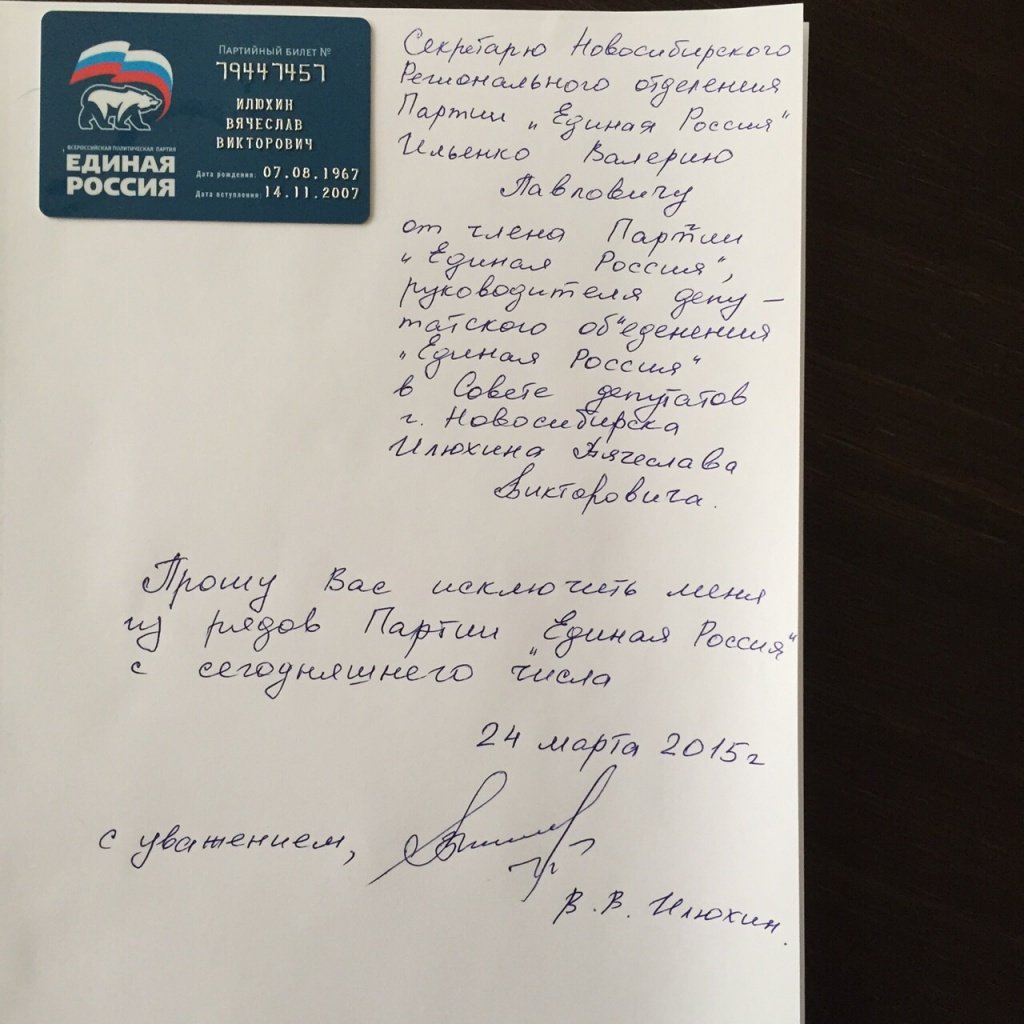 ПАРТИЙНЫЙ БИЛЕТ №
79447457
ИЛЮХИН
ВЯЧЕСЛАВ
ВИКТОРОВИЧ
ВСЕРОССИЙСКАЯ ПОЛИТИЧЕСКАЯ ПАРТИЯ
ЕДИНАЯ
РОССИЯ
Дата рождения: 07.08.1967
Дата вступления: 14.11.2007
Секретарю Новосибирского
Регионального отделения
Партии „Единая Россия"
Ильенко Валерию
Павловичу
от члена Партии
„Единая Россия",
руководителя депу-
татского об"еденения
„Единая Россия"
в Совете депутатов
г. Новосибирска
Илюхина Вячеслава
Викторовича.
Прошу Вас исключить меня
из рядов Партии „Единая Россия"
с сегодняшнего числа
24 марта 2015г
с уважением,
В.В. Илюхин.